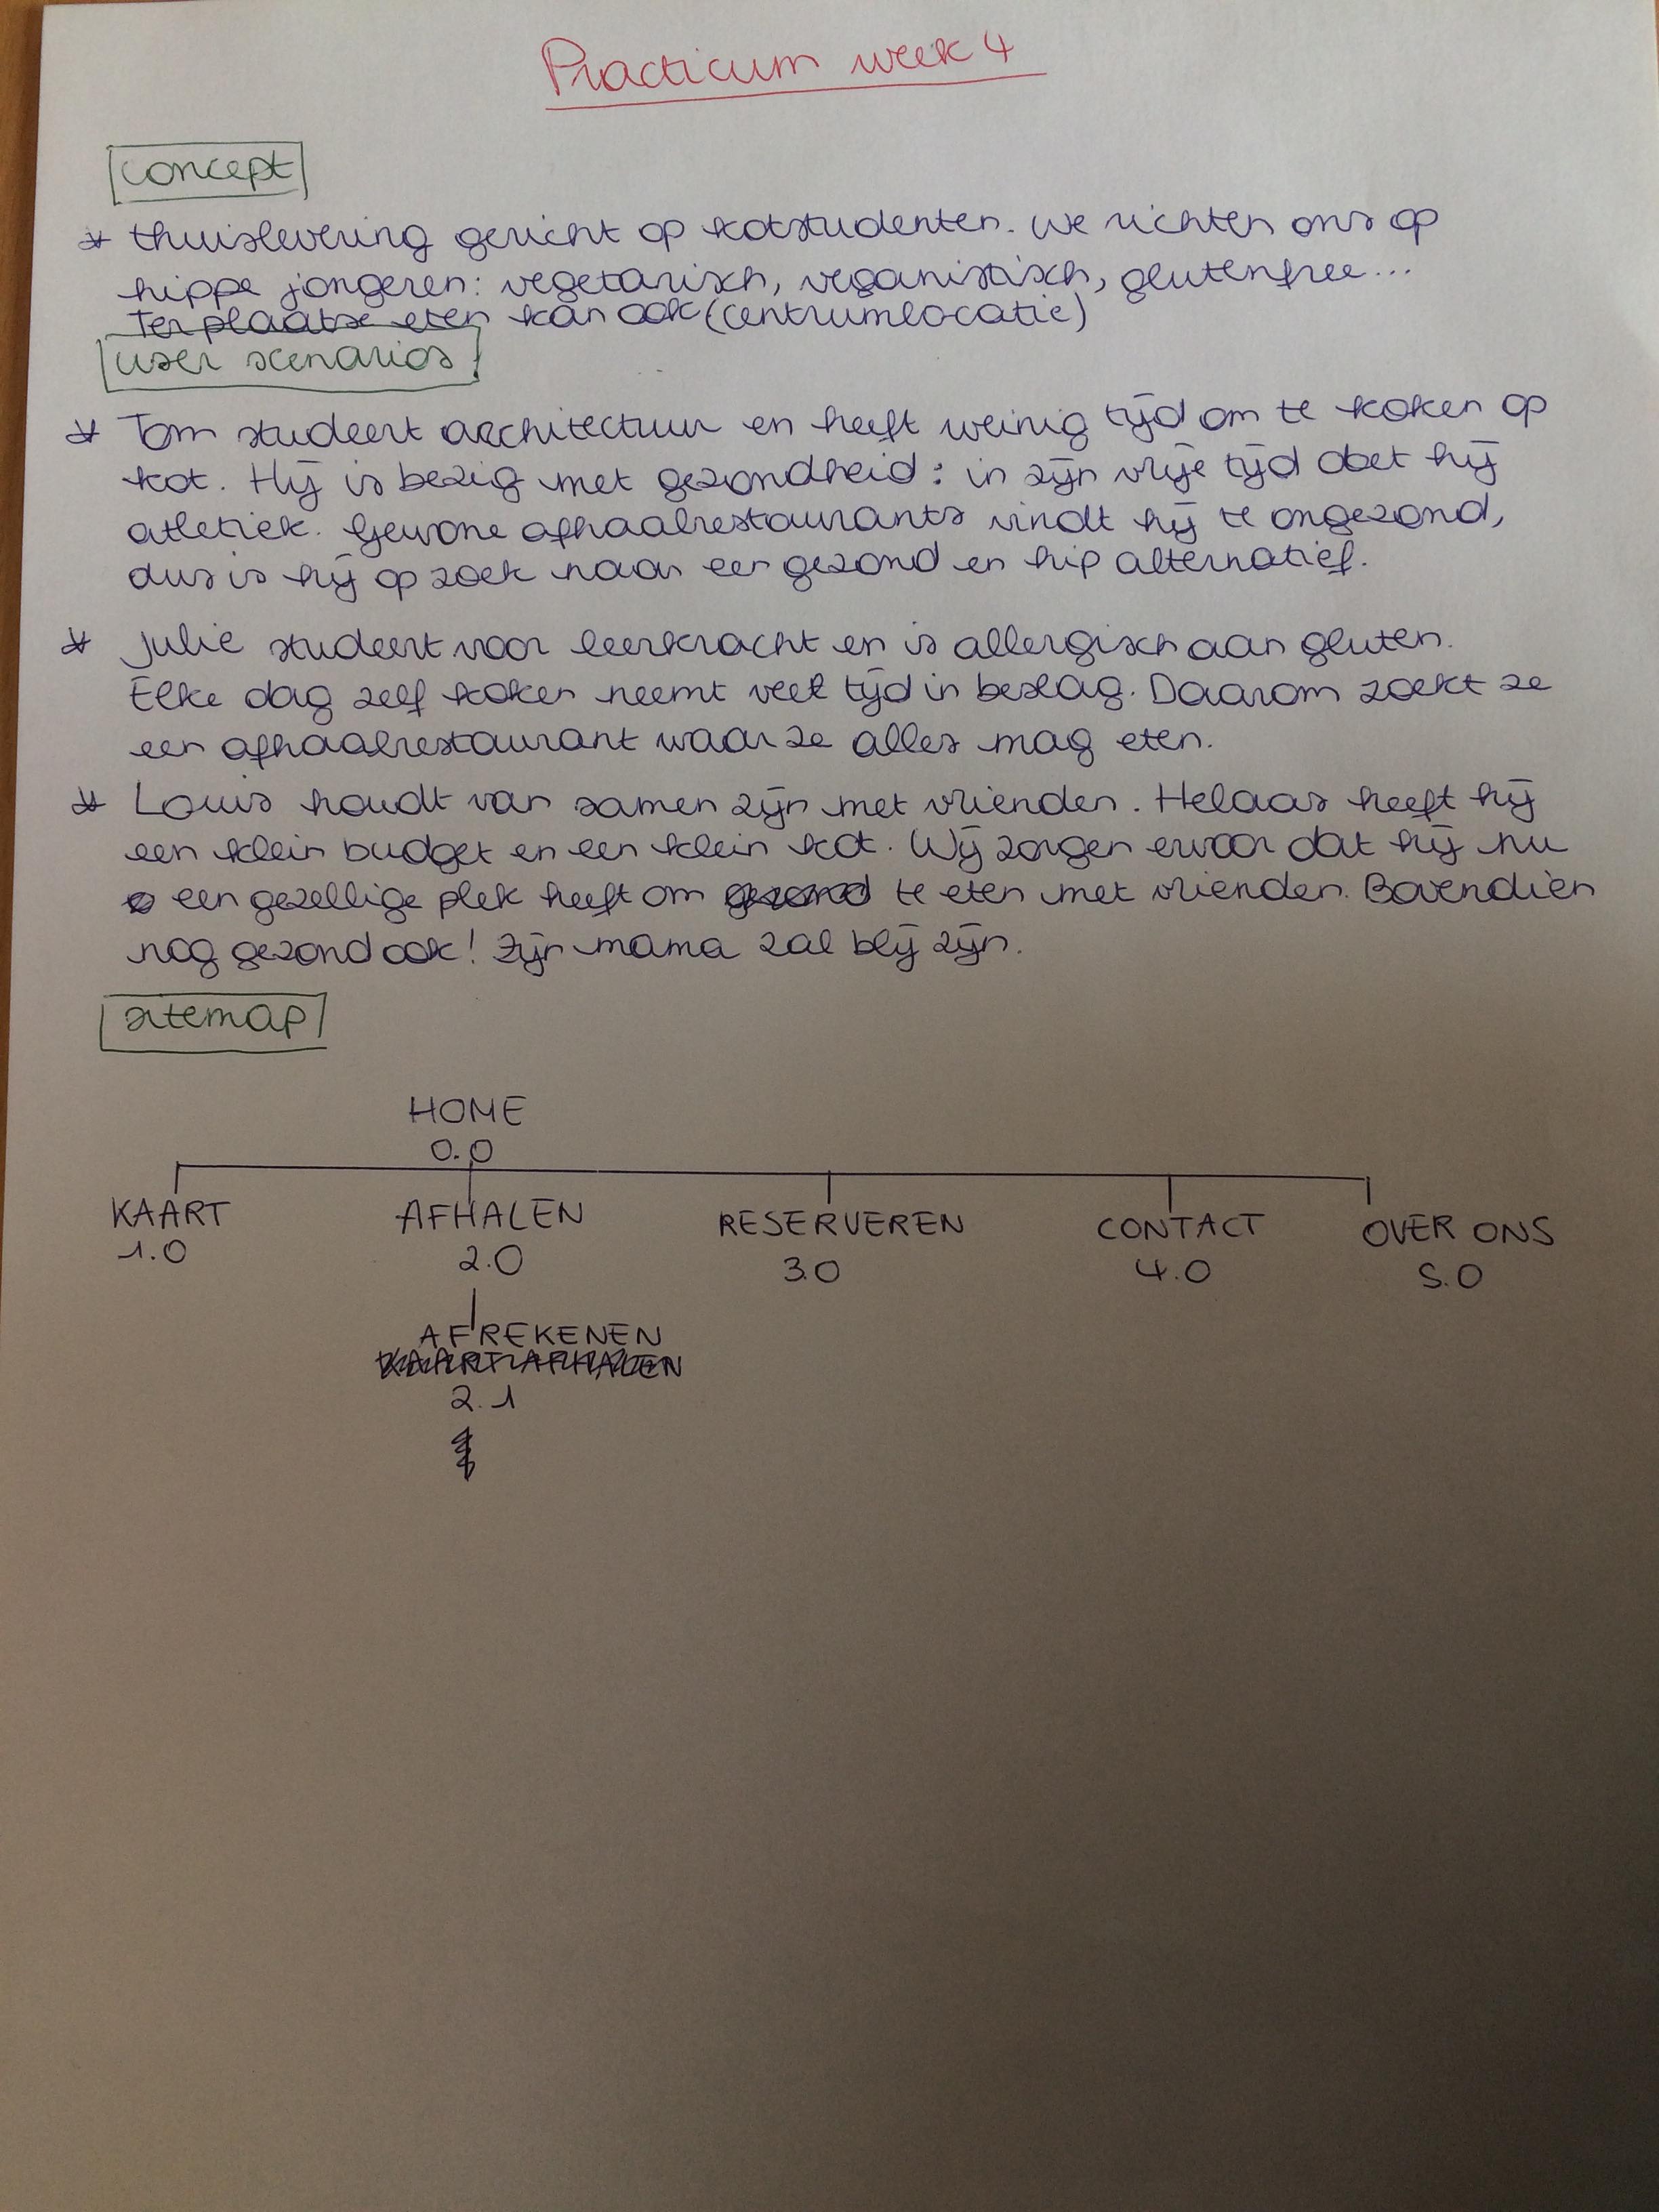 Practicum week 4
concept
* thuislevering gericht op kotstudenten. We richten ons op
hippe jongeren: vegetarisch, veganistisch, glutenfree...
Ter plaatse eten kan ook (centrumlocatie)
user scenarios
* Tom studeert architectuur en heeft weinig tijd om te koken op
kot. Hij is bezig met gezondheid: in zijn vrije tijd doet hij
atletiek. Gewone afhaalrestaurants vindt hij te ongezond,
dus is hij op zoek naar een gezond en hip alternatief.
* Julie studeert voor leerkracht en is allergisch aan gluten.
Elke dag zelf koken neemt veel tijd in beslag. Daarom zoekt ze
een afhaalrestaurant waar ze alles mag eten.
* Louis houdt van samen zijn met vrienden. Helaas heeft hij
een klein budget en een klein kot. Wij zorgen ervoor dat hij nu
een gezellige plek heeft om gezond te eten met vrienden. Bovendien
nog gezond ook! Zijn mama zal blij zijn.
sitemap
HOME
0.0
KAART AFHALEN RESERVEREN CONTACT OVER ONS
1.0 2.0 3.0 4.0 5.0
AFREKENEN
KAART AFHALEN
2.1